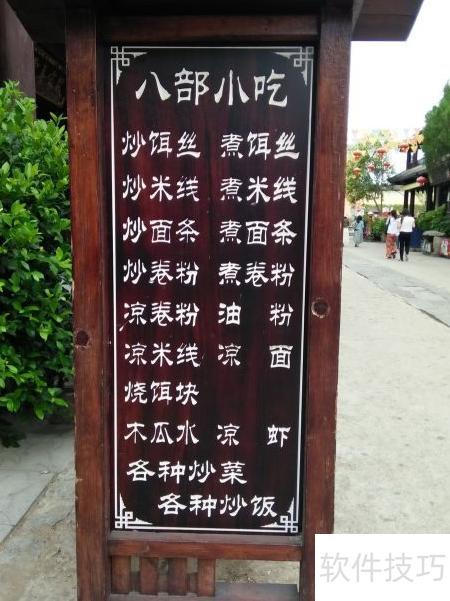 八部小吃
炒饵丝 煮饵丝
炒米线 煮米线
炒面条 煮面条
炒卷粉 煮卷粉
凉卷粉 油粉
凉米线 凉面
烧饵块
木瓜水 凉虾
各种炒菜
各种炒饭
软件技巧